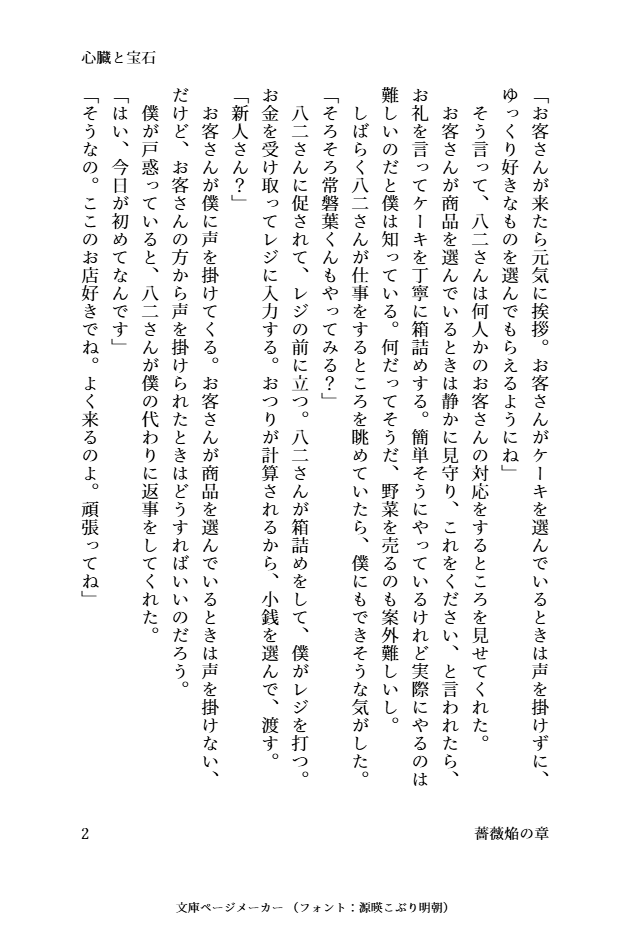 心臓と宝石
「お客さんが来たら元気に挨拶。お客さんがケーキを選んでいるときは声を掛けずに、
ゆっくり好きなものを選んでもらえるようにね」
　そう言って、八二さんは何人かのお客さんの対応をするところを見せてくれた。
　お客さんが商品を選んでいるときは静かに見守り、これをください、と言われたら、
お礼を言ってケーキを丁寧に箱詰めする。簡単そうにやっているけれど実際にやるのは
難しいのだと僕は知っている。何だってそうだ、野菜を売るのも案外難しいし。
　しばらく八二さんが仕事をするところを眺めていたら、僕にもできそうな気がした。
「そろそろ常磐葉くんもやってみる？」
　八二さんに促されて、レジの前に立つ。八二さんが箱詰めをして、僕がレジを打つ。
お金を受け取ってレジに入力する。おつりが計算されるから、小銭を選んで、渡す。
「新人さん？」
　お客さんが僕に声を掛けてくる。お客さんが商品を選んでいるときは声を掛けない、
だけど、お客さんの方から声を掛けられたときはどうすればいいのだろう。
　僕が戸惑っていると、八二さんが僕の代わりに返事をしてくれた。
「はい、今日が初めてなんです」
「そうなの。ここのお店好きでね。よく来るのよ。頑張ってね」
薔薇焔の章
2
文庫ページメーカー（フォント：源暎こぶり明朝）